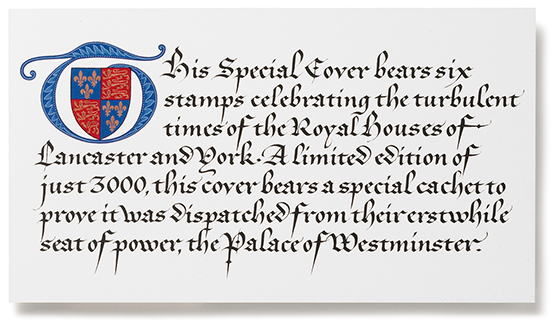 This Special Cover bears six
stamps celebrating the turbulent
times of the Royal Houses of
Lancaster and York. A limited edition of
just 3000, this cover bears a special cachet to
prove it was dispatched from their erstwhile
seat of power, the Palace of Westminster.